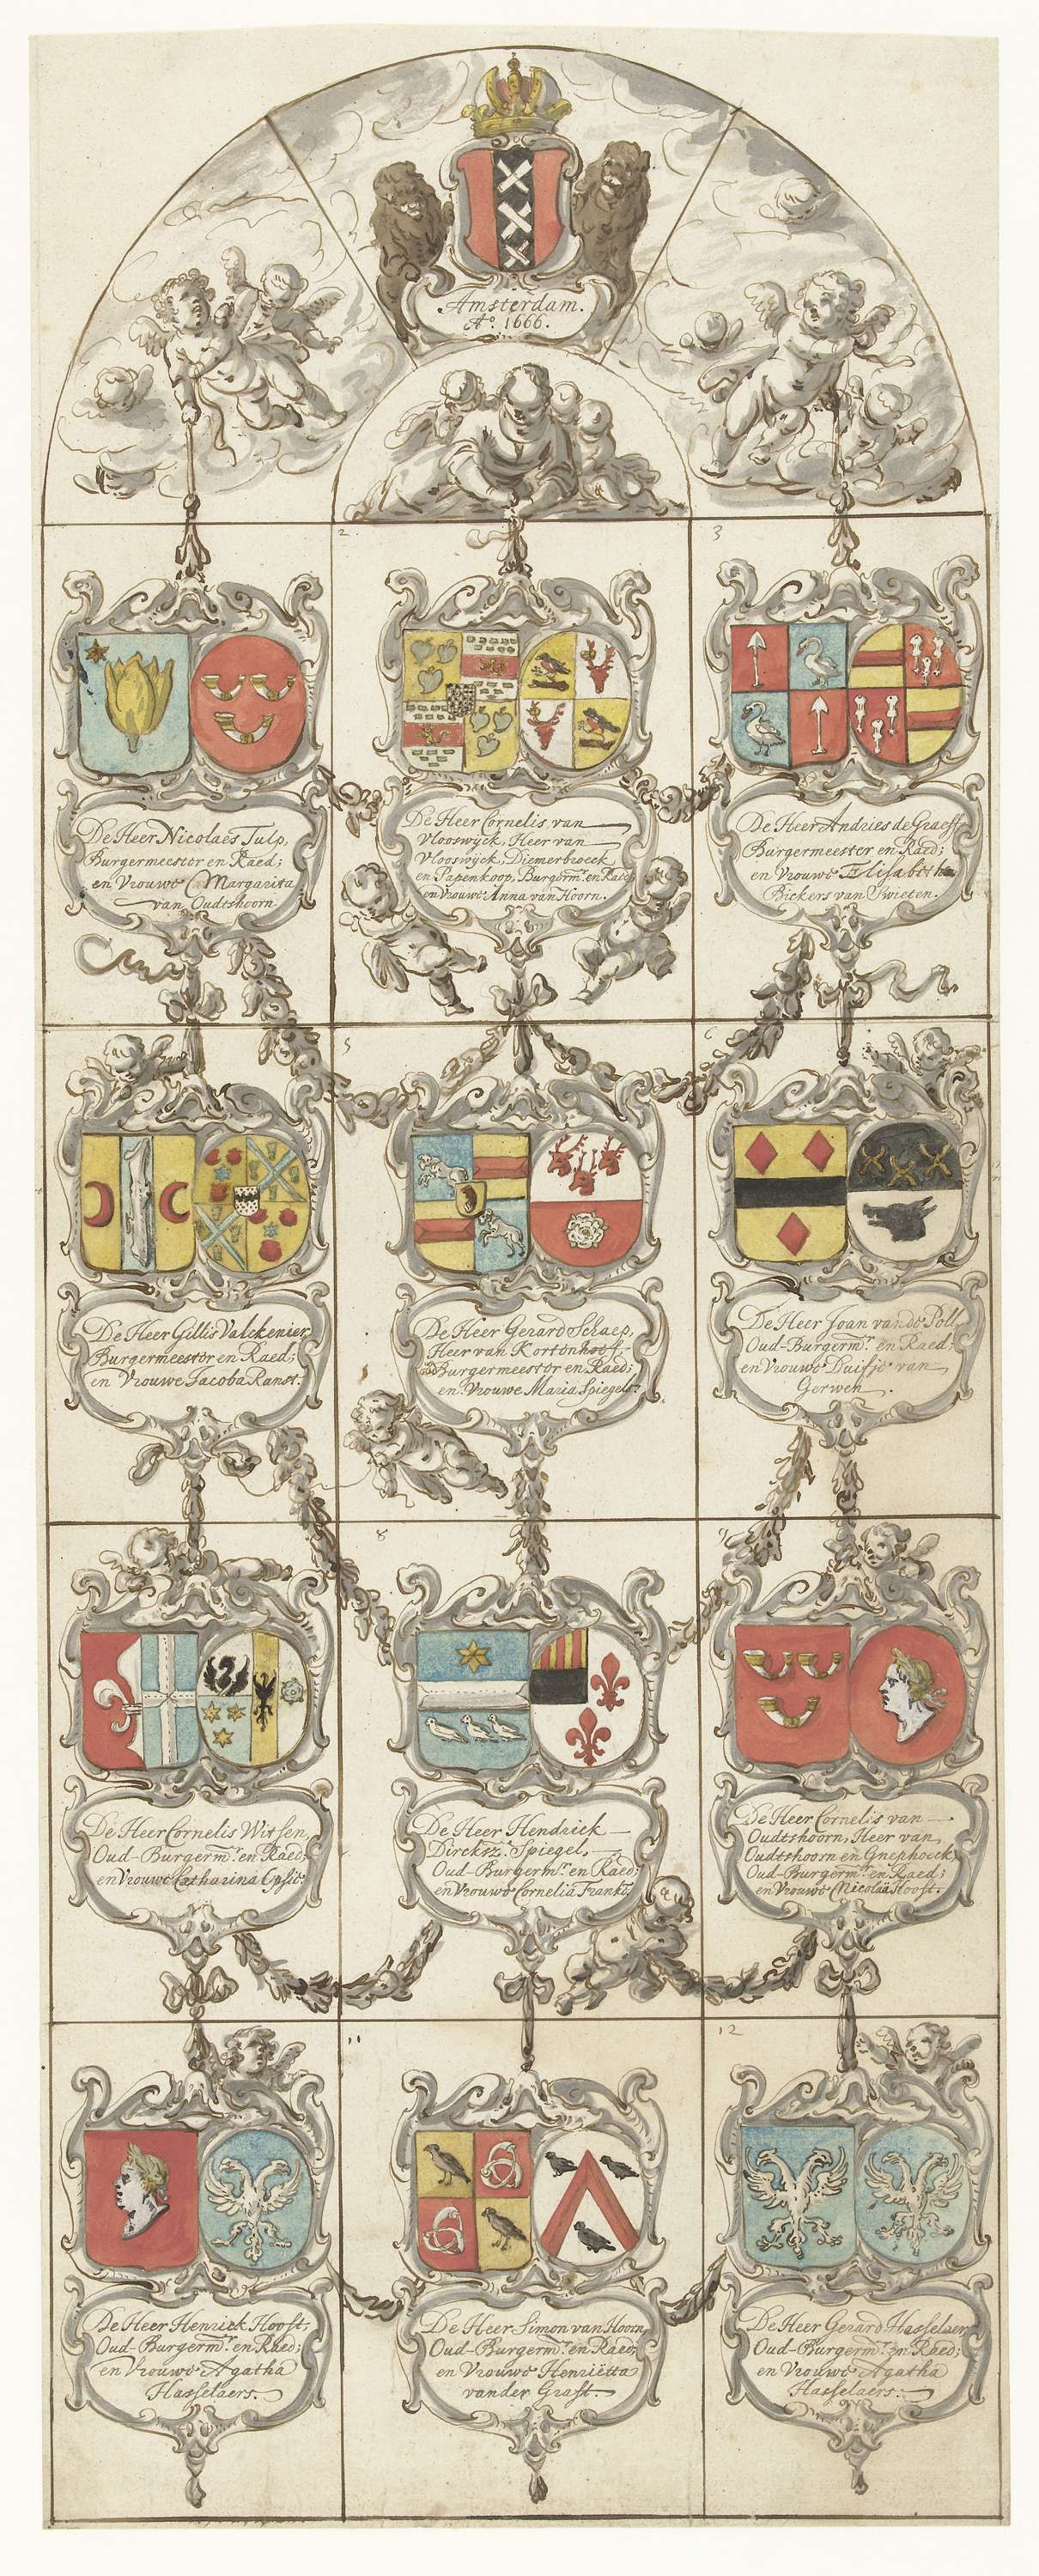 Amsterdam.
Aº. 1666.
2
3
De Heer Nicolaes Tulp,
Burgermeester en Raed;
en Vrouwe Margarita
van Oudtshoorn
De Heer Cornelis van
Vlooswijck, Heer van
Vlooswijck, Diemerbroeck
en Papenkoop, Burgerm.r en Raed
en Vrouwe Anna van Hoorn.
De Heer Andries de Graeff
Burgermeester en Raed;
en Vrouwe Elisabetha
Bickers van Swieten.
5
6
De Heer Gillis Valckenier
Burgermeester en Raed;
en Vrouwe Jacoba Ranst.
De Heer Gerard Schaep,
Heer van Kortenhoef,
Burgermeester en Raed;
en Vrouwe Maria Spiegels.
De Heer Joan vande Poll
Oud-Burgerm.r en Raed;
en Vrouwe Duifje van
Gerwen.
8
9
De Heer Cornelis Witsen,
Oud-Burgerm.r en Raed;
en Vrouwe Catharina Opsie
De Heer Hendrick
Dircksz. Spiegel,
Oud-Burgerm.r en Raed;
en Vrouwe Cornelia Franks.
De Heer Cornelis van
Oudtshoorn, Heer van
Oudtshoorn en Gnephoeck
Oud-Burgerm.r en Raed;
en Vrouwe Nicolaa Hooft.
11
12
De Heer Henrick Hooft,
Oud-Burgerm.r en Raed;
en Vrouwe Agatha
Hasselaers.
De Heer Simon van Hoorn
Oud-Burgerm.r en Raed;
en Vrouwe Henriëtta
vander Graft.
De Heer Gerard Hasselaer
Oud-Burgerm.r en Raed;
en Vrouwe Agatha
Hasselaers.